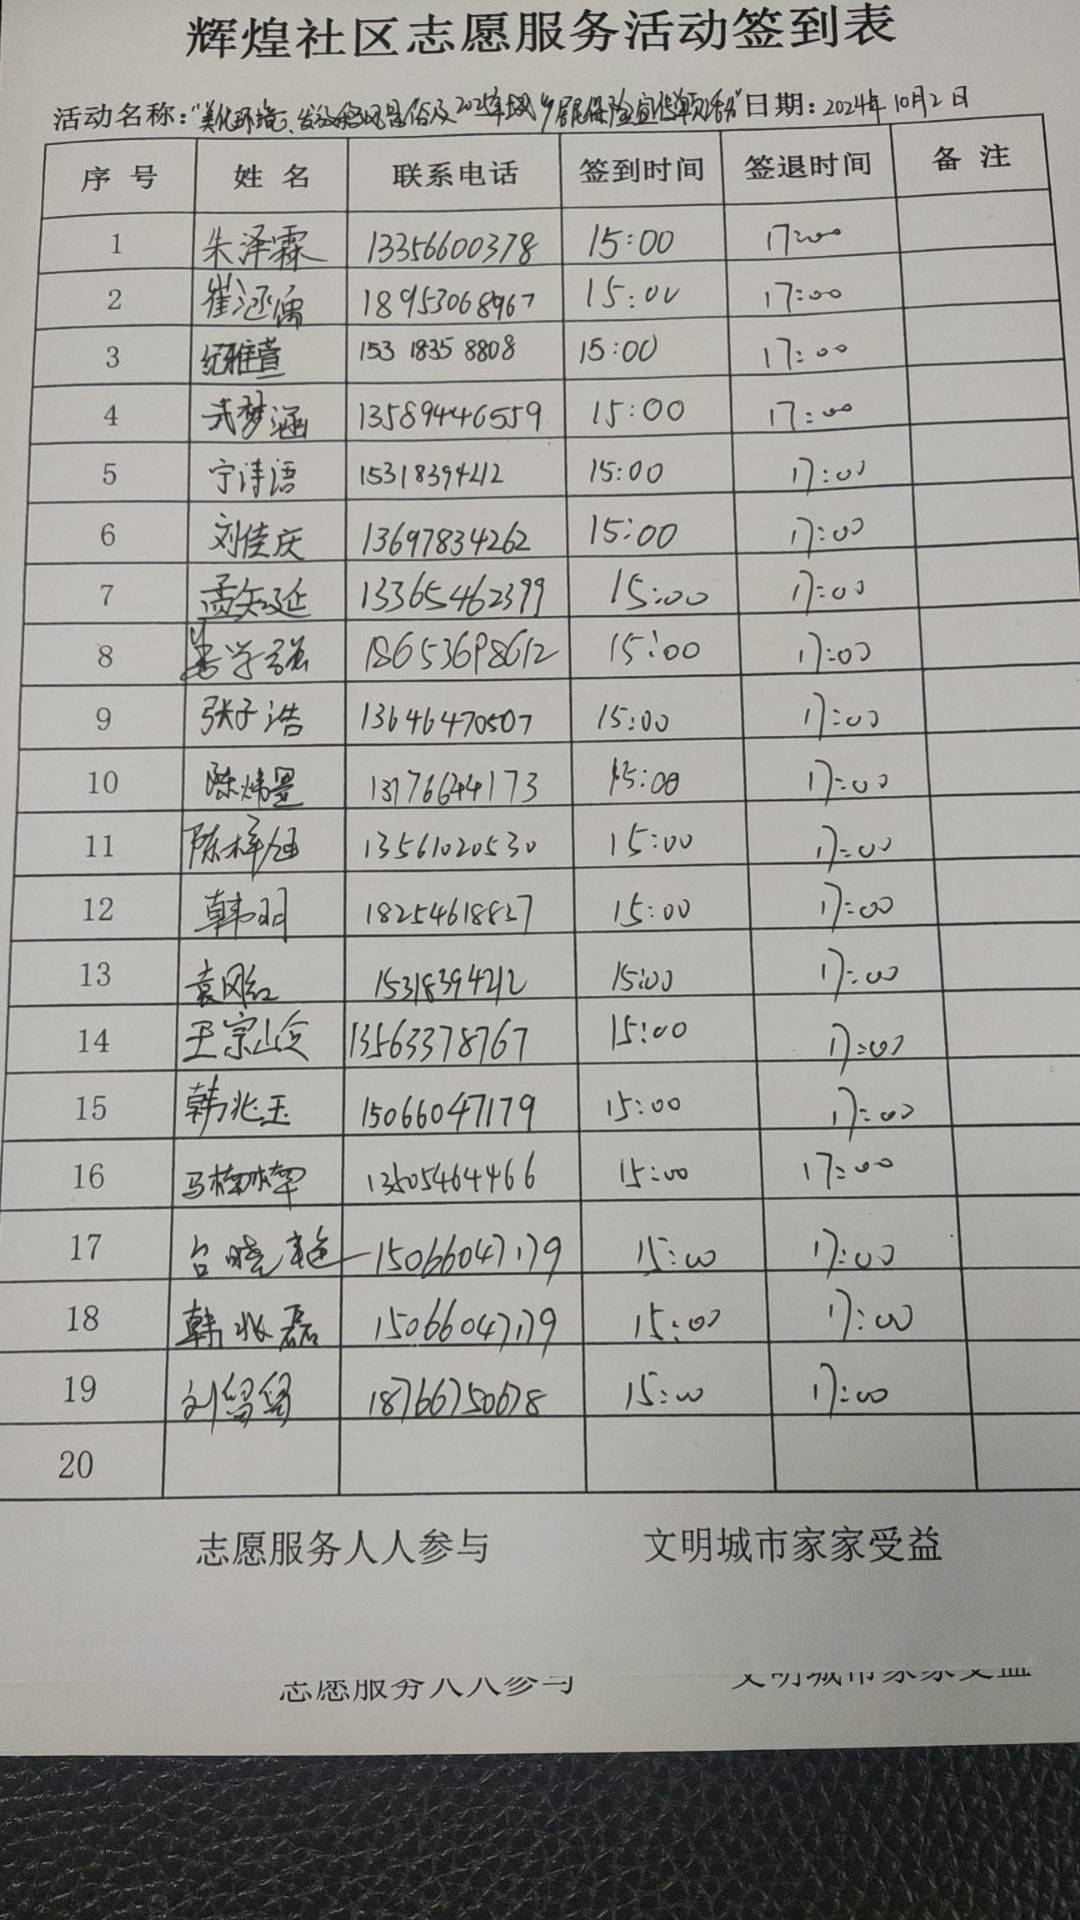 辉煌社区志愿服务活动签到表
活动名称："美化环境、发放移风易俗及2025年城乡居民保险宣传单页活动" 日期：2024年10月2日
序号 姓名 联系电话 签到时间 签退时间 备注
1 朱泽霖 13356600378 15:00 17:00
2 崔涵儒 18953068967 15:00 17:00
3 纪雅萱 153 1835 8808 15:00 17:00
4 武梦涵 13589446559 15:00 17:00
5 宁诗语 15318394212 15:00 17:00
6 刘佳庆 13697834262 15:00 17:00
7 孟矢延 13365462399 15:00 17:00
8 学强 18653698612 15:00 17:00
9 张子浩 13646470507 15:00 17:00
10 陈炜昱 13176644173 15:00 17:00
11 陈梓旭 13561020530 15:00 17:00
12 韩明 18254618827 15:00 17:00
13 袁刚红 15318394212 15:00 17:00
14 王宗 13563378767 15:00 17:00
15 韩兆玉 15066047179 15:00 17:00
16 马楠楠 13505464466 15:00 17:00
17 台晓艳 15066047179 15:00 17:00
18 韩兆磊 15066047179 15:00 17:00
19 刘留留 18766750678 15:00 17:00
20
志愿服务人人参与 文明城市家家受益
志愿服务人人参与 文明城市家家受益